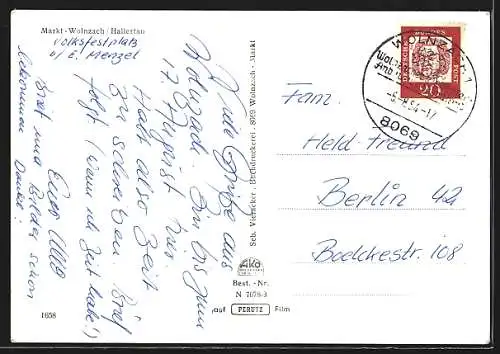 Markt-Wolnzach/Hallertau
Volksfestplatz
b/ E. Menzel
Viele Grüße aus
Wolnzach. Bin bis zum
17. August hier.
Habt also Zeit
zu schreiben. Brief
folgt (wenn ich Zeit habe!)
Euer
Brief und Bilder schon
bekommen
Danke!
Seb. Viernickel, Buchdruckerei · 8069 Wolnzach-Markt
Ako
Best.-Nr.
N 7678-3
auf PERUTZ Film
1658
WOLNZACH
8069
BUNDESPOST
20
Fam.
Held-Freund
Berlin 42
Boelckestr. 108